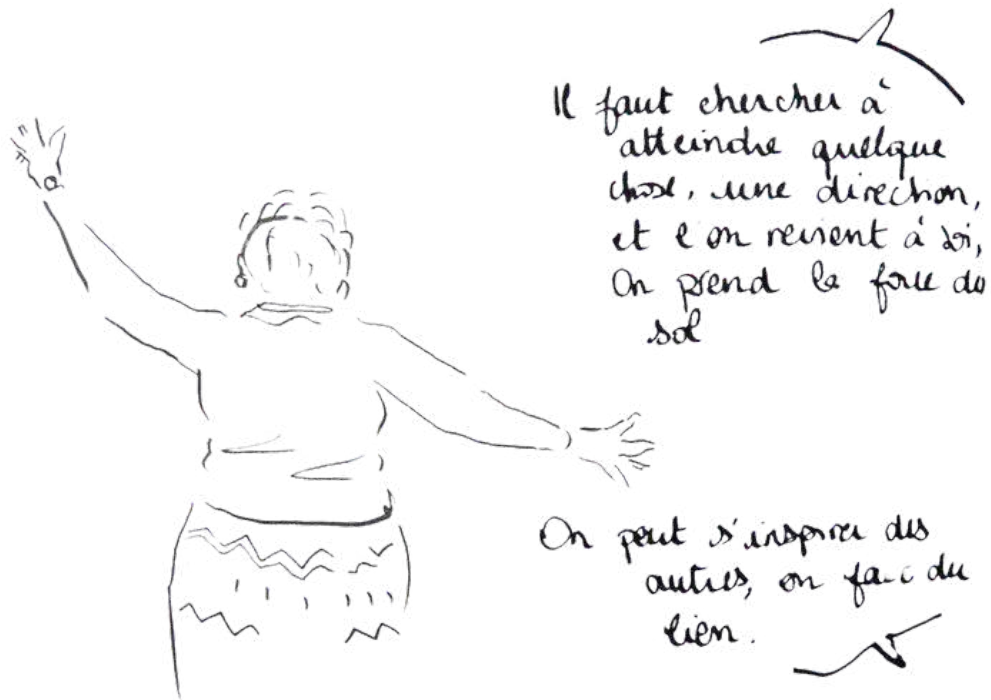 Il faut chercher à
atteindre quelque
chose, une direction,
et l'on revient à soi,
On prend la force du
sol
On peut s'inspirer des
autres, on fait du
lien.